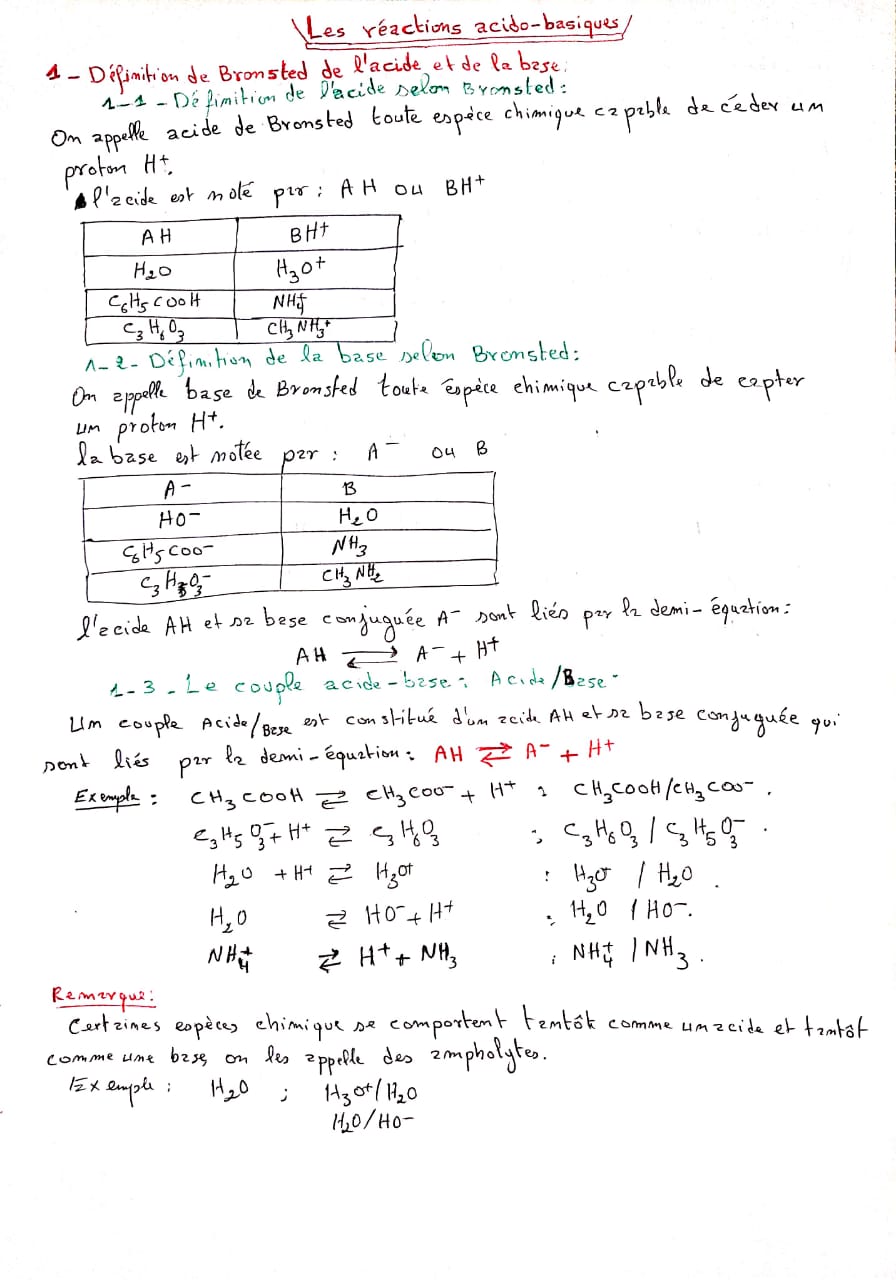 Les réactions acido-basiques
1 - Définition de Bronsted de l'acide et de la base:
1-1 - Définition de l'acide selon Bronsted:
On appelle acide de Bronsted toute espèce chimique capable de céder un
proton H⁺.
l'acide est noté par : AH ou BH⁺
AH BH⁺
H₂O H₃O⁺
C₆H₅COOH NH₄⁺
C₃H₆O₃ CH₃NH₃⁺
1-2- Définition de la base selon Bronsted:
On appelle base de Bronsted toute espèce chimique capable de capter
un proton H⁺.
la base est notée par : A⁻ ou B
A⁻ B
HO⁻ H₂O
C₆H₅COO⁻ NH₃
C₃H₅O₃⁻ CH₃NH₂
l'acide AH et sa base conjuguée A⁻ sont liés par la demi-équation:
AH ⇄ A⁻ + H⁺
1-3-Le couple acide-base: Acide/Base-
Um couple Acide/Base est constitué d'un acide AH et sa base conjuguée qui
sont liés par la demi-équation: AH ⇄ A⁻ + H⁺
Exemple : CH₃COOH ⇄ CH₃COO⁻ + H⁺ : CH₃COOH/CH₃COO⁻.
C₃H₅O₃⁻ + H⁺ ⇄ C₃H₆O₃ ; C₃H₆O₃ / C₃H₅O₃⁻.
H₂O + H⁺ ⇄ H₃O⁺ : H₃O⁺ / H₂O.
H₂O ⇄ HO⁻ + H⁺ : H₂O / HO⁻.
NH₄⁺ ⇄ H⁺ + NH₃ ; NH₄⁺ / NH₃.
Remarque:
Certaines espèces chimique se comportent tantôt comme un acide et tantôt
comme une base, on les appelle des ampholytes.
Exemple : H₂O ; H₃O⁺/H₂O
H₂O/HO⁻